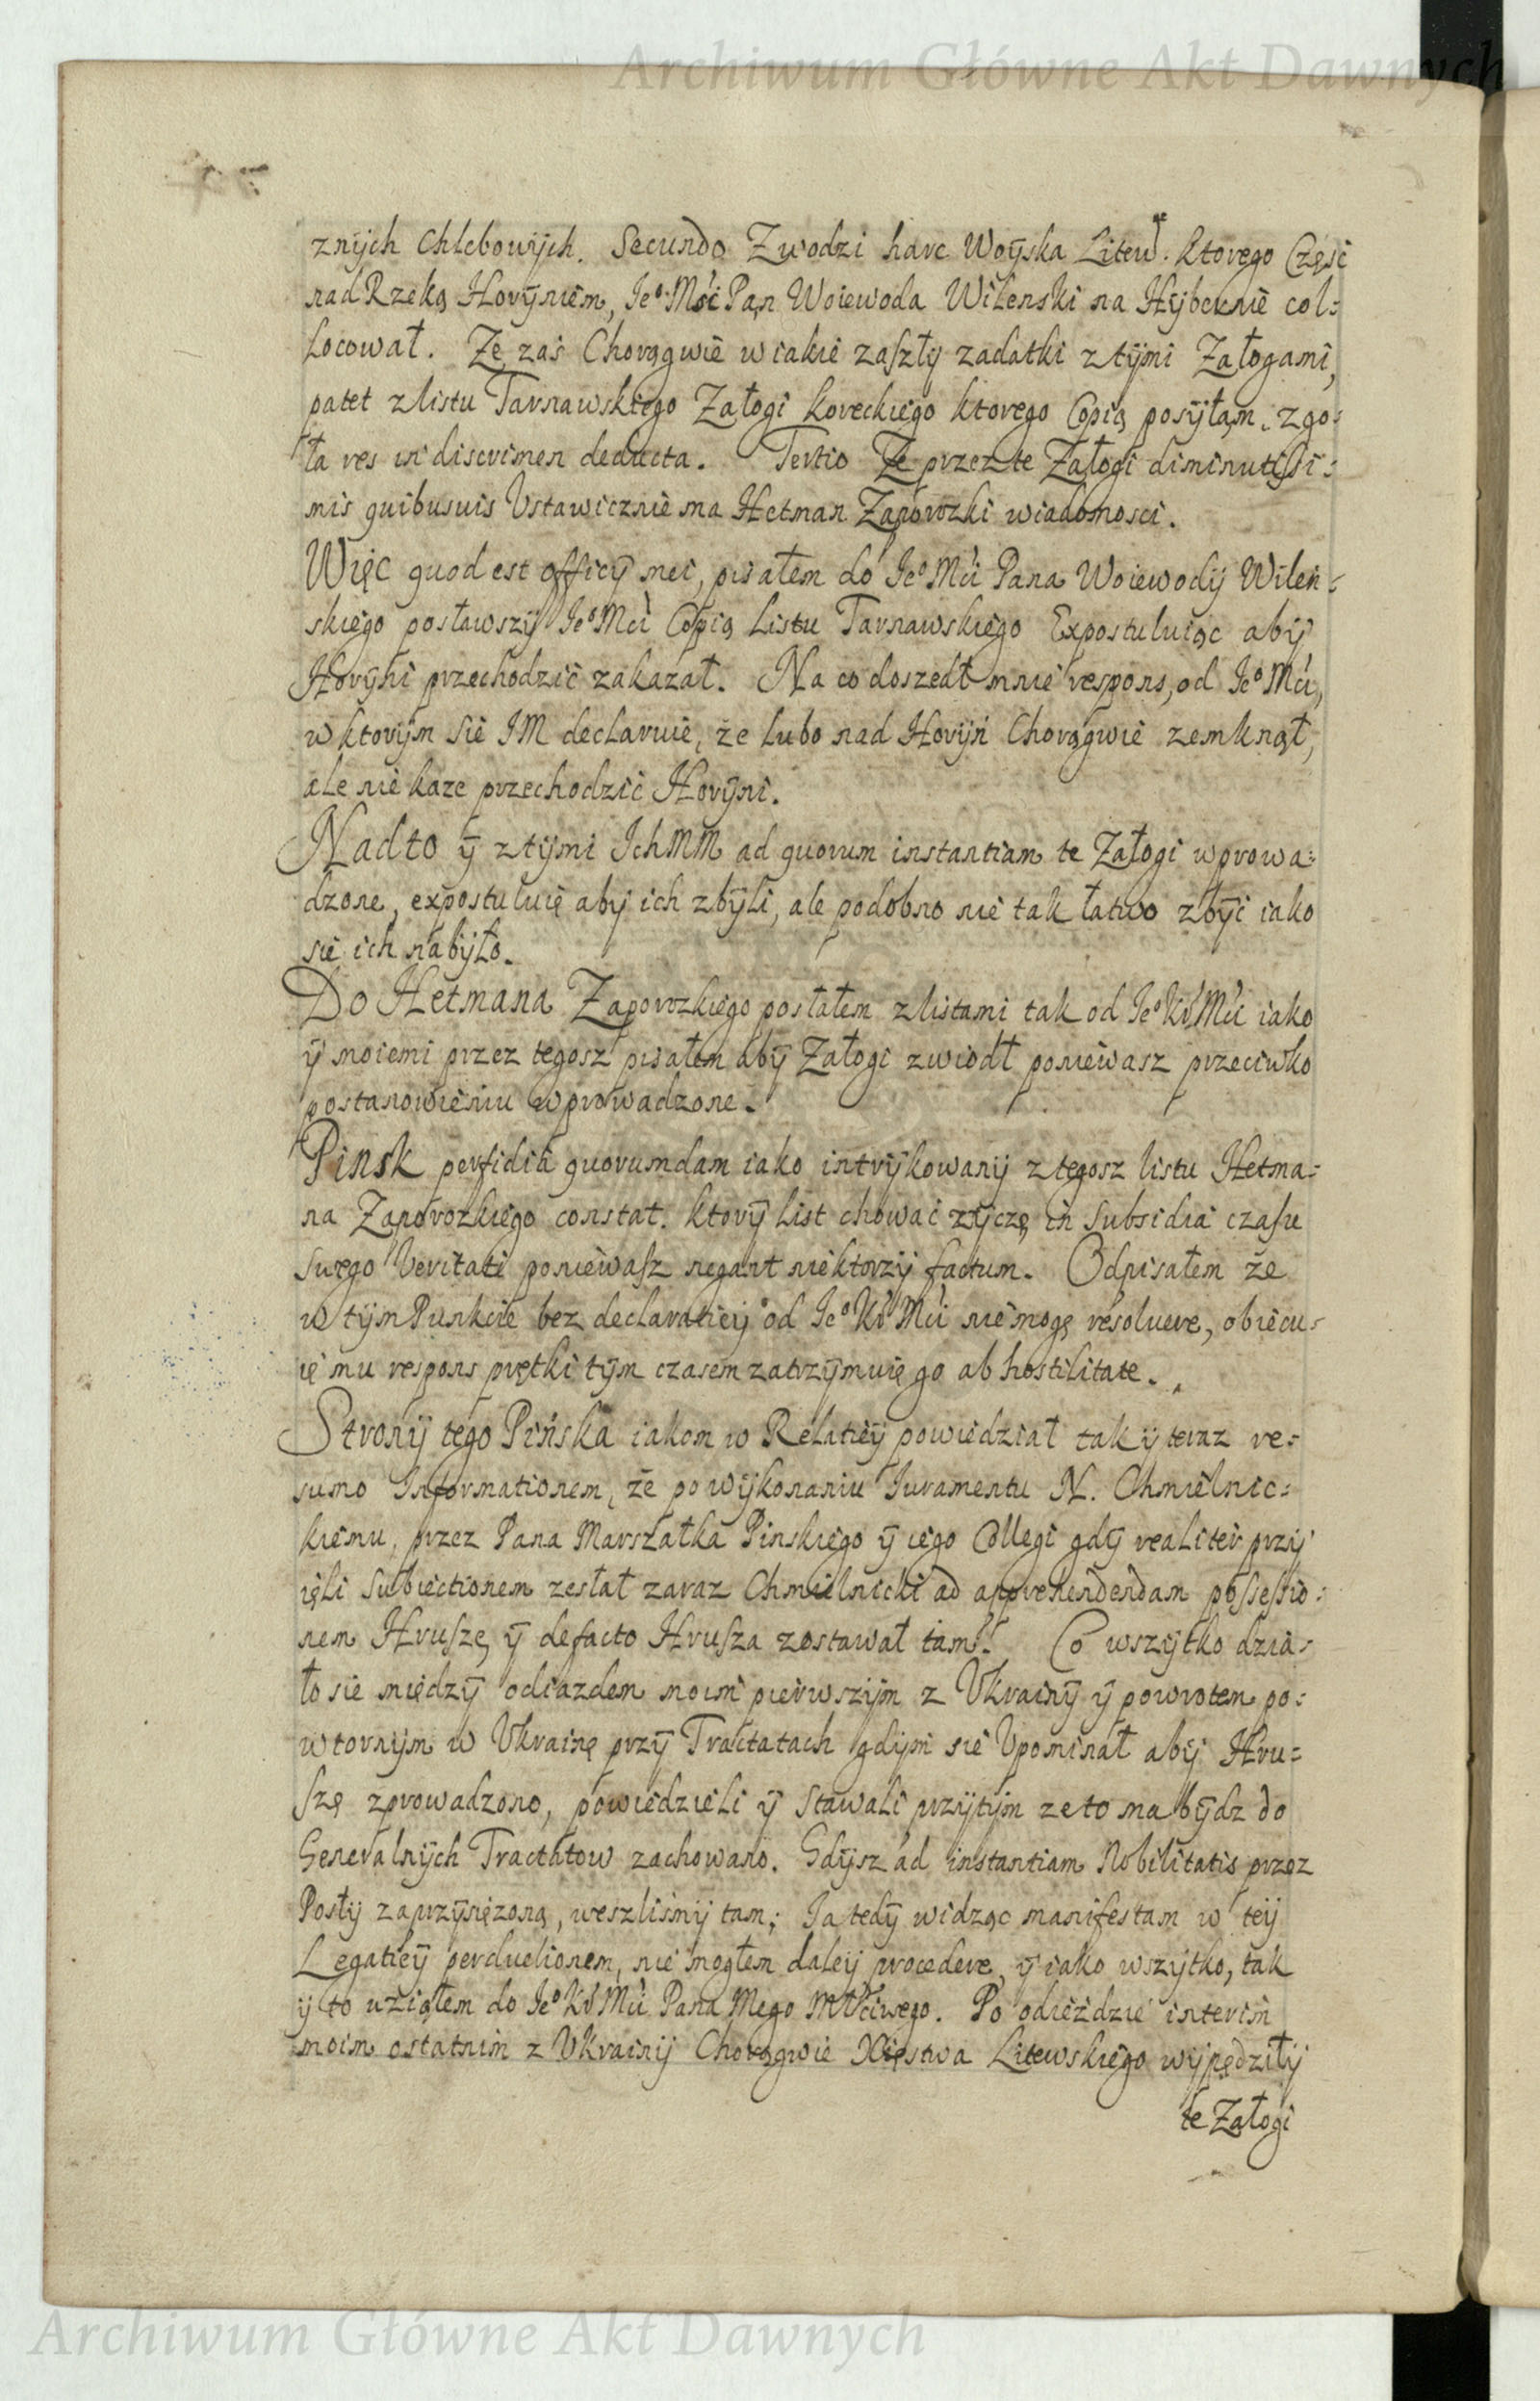 Archiwum Główne Akt Dawnych
znijch Chlebowijch. Secundo Zwodzi harc Woÿska Litew. ktorego Częsc
nad Rzeką Horÿniem, Jeº Mści Pan Woiewoda Wilenski na Hÿbernie col=
locował. Ze zaś Chorągwie w iakie zaszły zadatki z tÿmi Załogami,
patet z listu Tarnawskiego Załogi koreckiego ktorego Copią posÿłam, zgo=
ła res in discrimen deducta. Tertio Ze przez te Załogi diminutissi=
mis quibusuis Vstawicznie ma Hetman Zaporozki wiadomosci.
Więc quod est officÿ mei, pisałem do Jeº Mći Pana Woiewodÿ Wileń=
skiego posławszÿ Jeº Mći Copią Listu Tarnawskiego Expostuluiąc abÿ
Horÿni przechodzić zakazał. Na co doszedł mnie respons, od Jeº Mći,
w ktorÿm sie JM declaruie, że lubo nad Horÿń Chorągwie zemknął,
ale nie kaze przechodzić Horÿni.
Nadto ÿ z tÿmi Ich MM ad quorum instantiam te Załogi wprowa=
dzone, expostuluię aby ich zbÿli, ale podobno nie tak łatwo zbÿć iako
sie ich nabÿło.
Do Hetmana Zaporozkiego posłałem z listami tak od Jeº Kr Mći iako
ÿ moiemi przez tegosz pisałem abÿ Załogi zwiodł poniewasz przeciwko
postanowieniu wprowadzone.
Pinsk perfidia quorumdam iako intrÿkowanÿ z tegosz listu Hetma=
na Zaporozkiego constat. ktorÿ list chować zÿczę in Subsidia czasu
swego Veritati poniewasz negant niektorzÿ factum. Odpisałem że
w tÿm Punkcie bez declaratieÿ od Jeº Kr Mći nie mogę resoluere, obiecu=
ię mu respons prętki tÿm czasem zatrzÿmuię go ab hostilitate.
Stronÿ tego Pińska iakom w Relatieÿ powiedział tak ÿ teraz re=
sumo Informationem, że po wÿkonaniu Iuramentu N. Chmielnic=
kiemu, przez Pana Marszałka Pinskiego ÿ iego Collegi gdÿ realiter przÿ
ięli Subiectionem zesłał zaraz Chmielnicki ad apprehendendam possessio=
nem Hruszę ÿ defacto Hrusza zostawał tam. Co wszÿtko dzia=
ło sie międzÿ odiazdem moim pierwszÿm z Vkrainÿ ÿ powrotem po=
wtornÿm w Vkrainę przÿ Tractatach gdÿm sie Vpominał abÿ Hru=
szę zprowadzono, powiedzieli ÿ Stawali przÿtÿm ze to ma bÿdz do
Generalnÿch Tractatow zachowano. Gdÿsz ad instantiam Nobilitatis przez
Posłÿ zaprzÿsięzoną, weszliśmÿ tam; Ja tedÿ widząc manifestam w teÿ
Legatieÿ perduelionem, nie mogłem daleÿ procedere, ÿ iako wszÿtko, tak
ÿ to uziąłem do Jeº Kr Mći Pana Mego Młściwego. Po odieździe interim
moim ostatnim z Vkrainÿ Chorągwie Xięstwa Litewskiego wÿpędziłÿ
te Załogi
Archiwum Główne Akt Dawnych